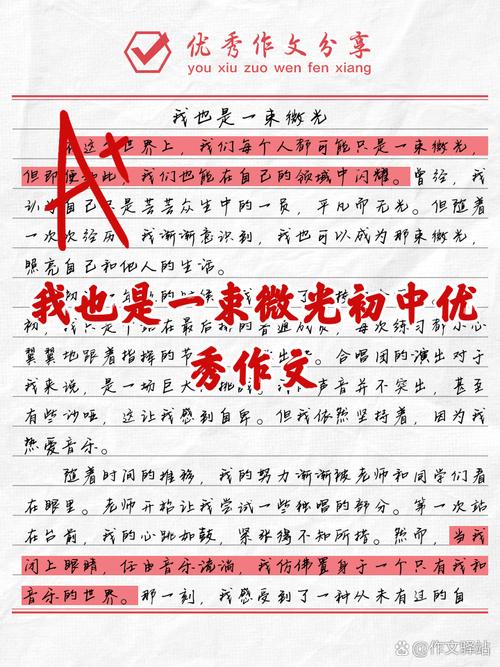 优秀作文分享
you xiu zuo wen fen xiang
我也是一束微光
A+
这世界上，我们每个人都可能只是一束微光，
但即便如此，我们也能在自己的领域中闪耀。曾经，我
认为自己只是芸芸众生中的一员，平凡而无光。但随着
一次次经历，我渐渐意识到，我也可以成为那束微光，
照亮自己和他人的生活。
我也是一束微光初中优
初，我只是个在最后排的普通成员，每次练习都小心
翼翼地跟着指挥的节出合唱团的演出对于
秀作文
我来说，是一场巨大声音并不突出，甚至
有些沙哑，这让我感到自卑。但我依然坚持着，因为我
热爱音乐。
随着时间的推移，我的努力渐渐被老师和同学们看
在眼里。老师开始让我尝试一些独唱的部分。第一次站
在台前，我的心跳如鼓，紧张得不知所措。然而，当我
闭上眼睛，任由音乐流淌，我仿佛置身于一个只有我和
音乐的世界。那一刻，我感受到了一种从未有过的自
@作文驿站